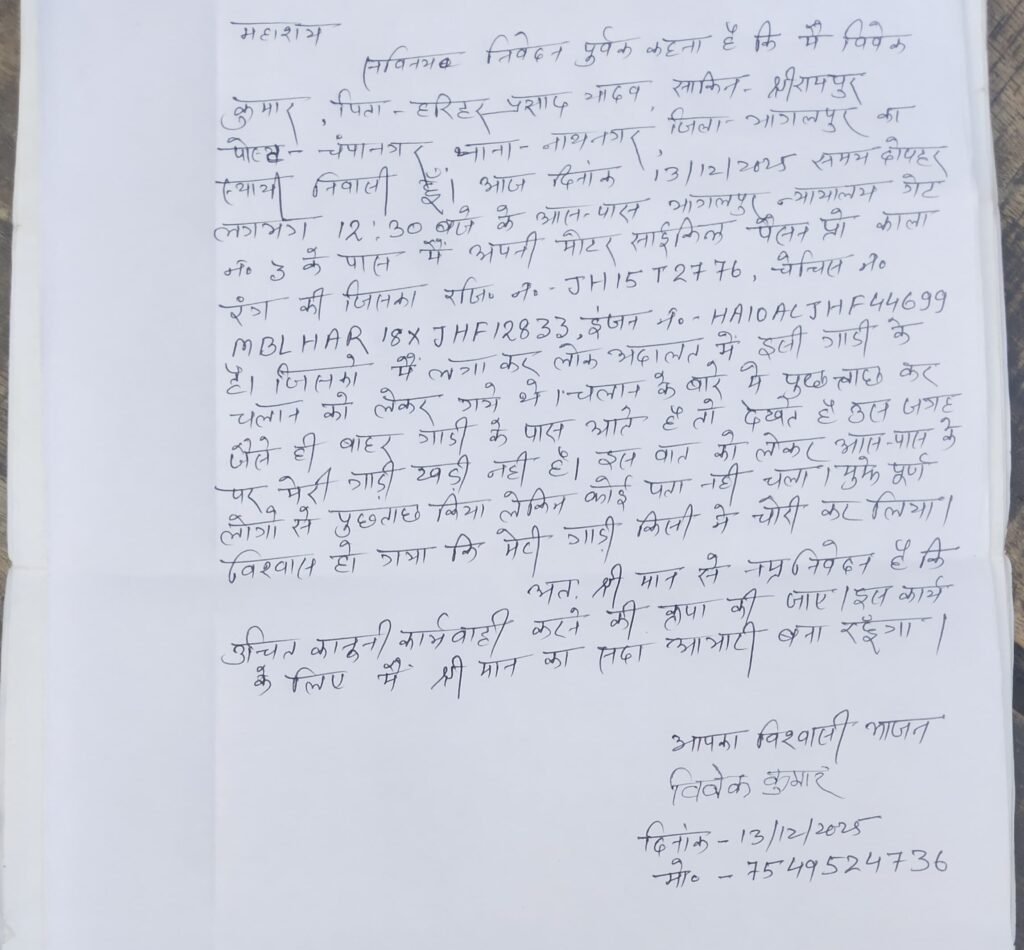 महाशय
सविनय निवेदन पुर्वक कहना है कि मैं विवेक
कुमार, पिता- हरिहर प्रसाद यादव, साकिन- श्रीरामपुर
पोस्ट- चंपानगर, थाना- नाथनगर, जिला- भागलपुर का
स्थायी निवासी हूँ। आज दिनांक 13/12/2025 समय दोपहर
लगभग 12:30 बजे के आस-पास भागलपुर न्यायालय गेट
नं॰ 3 के पास मैं अपनी मोटर साईकिल पैसन प्रो काला
रंग की जिसका रजि॰ नं॰- JH15T2776, चेचिस नं॰
MBLHAR18XJHF12833, इंजन नं॰- HA10ACJHF44699
है। जिसको मैं लगा कर लोक अदालत में इसी गाडी के
चलान को लेकर गये थे। चलान के बारे मे पुछताछ कर
जैसे ही बाहर गाडी के पास आते है तो देखते है उस जगह
पर मेरी गाड़ी खड़ी नही है। इस बात को लेकर आस-पास के
लोगो से पुछताछ किया लेकिन कोई पता नही चला। मुझे पूर्ण
विश्वास हो गया कि मेरी गाड़ी किसी ने चोरी कर लिया।
अत: श्री मान से नम्र निवेदन है कि
उचित कानुनी कार्यवाही करने की कृपा की जाए। इस कार्य
के लिए मैं श्री मान का सदा आभारी बना रहूँगा।
आपका विश्वासी भाजन
विवेक कुमार
दिनांक- 13/12/2025
मो॰ - 7549524736